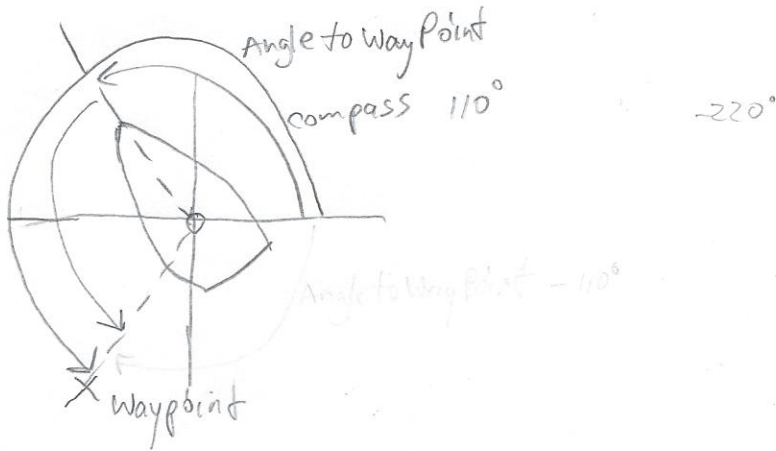 Angle to WayPoint
compass 110°
-220°
Angle to WayPoint - 110°
Waypoint